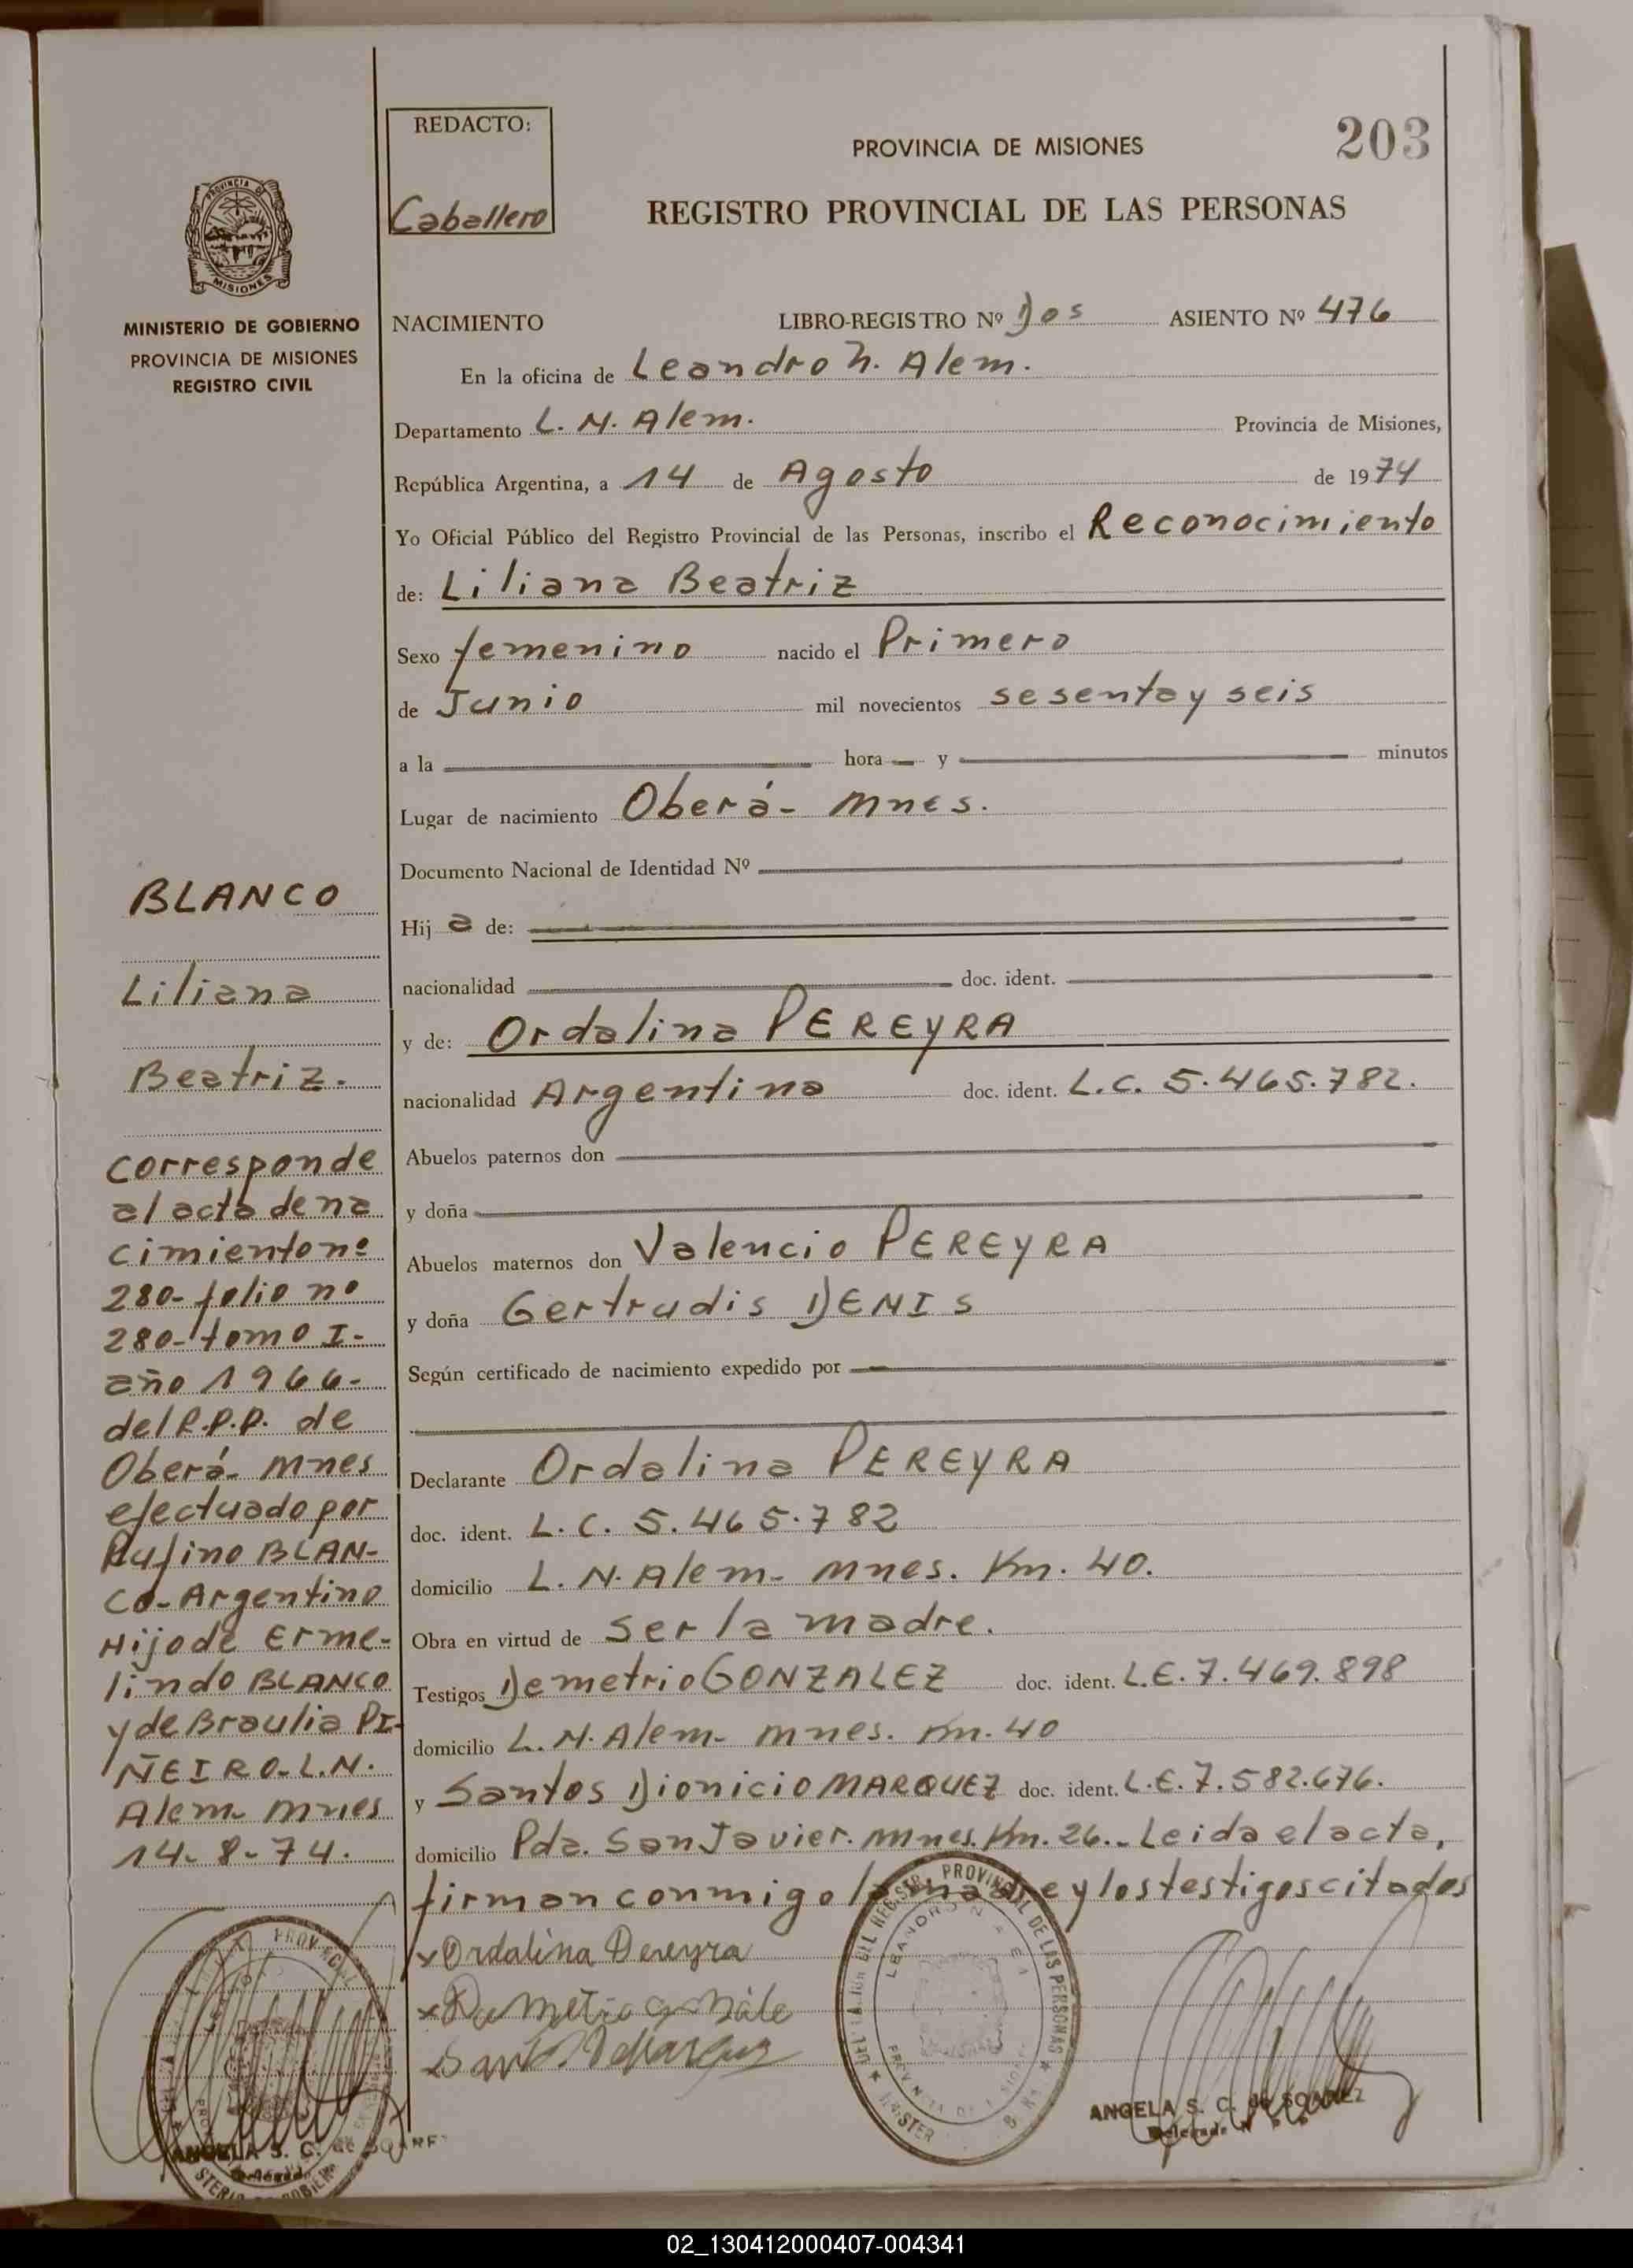 203
REDACTO:
Caballero
PROVINCIA DE MISIONES
REGISTRO PROVINCIAL DE LAS PERSONAS
PROVINCIA DE
MISIONES
MINISTERIO DE GOBIERNO
PROVINCIA DE MISIONES
REGISTRO CIVIL
NACIMIENTO LIBRO-REGISTRO Nº Dos ASIENTO Nº 476
En la oficina de Leandro N. Alem.
Departamento L. N. Alem. Provincia de Misiones,
República Argentina, a 14 de Agosto de 1974
Yo Oficial Público del Registro Provincial de las Personas, inscribo el Reconocimiento
de: Liliana Beatriz
Sexo femenino nacido el Primero
de Junio mil novecientos sesenta y seis
a la hora y minutos
Lugar de nacimiento Oberá- Mnes.
Documento Nacional de Identidad Nº
Hij a de:
nacionalidad doc. ident.
y de: Ordalina PEREYRA
nacionalidad Argentina doc. ident. L.C. 5.465.782.
Abuelos paternos don
y doña
Abuelos maternos don Valencio PEREYRA
y doña Gertrudis DENIS
Según certificado de nacimiento expedido por
Declarante Ordalina PEREYRA
doc. ident. L.C. 5.465.782
domicilio L. N. Alem- Mnes. Km. 40.
Obra en virtud de ser la madre.
Testigos Demetrio GONZALEZ doc. ident. L.E. 7.469.898
domicilio L. N. Alem- Mnes. Km. 40
y Santos Dionicio MARQUEZ doc. ident. L.E. 7.582.676.
domicilio Pda. San Javier. Mnes. Km. 26.- Leida el acta,
firman conmigo la madre y los testigos citados
x Ordalina Pereyra
BLANCO
Liliana
Beatriz.
corresponde
al acta de na
cimiento nº
280- folio nº
280- tomo I-
año 1966-
del R.P.P. de
Oberá- Mnes
efectuado por
Rufino BLAN-
CO- Argentino
Hijo de Erme-
lindo BLANCO
y de Braulia PI-
ÑEIRO- L.N.
Alem- Mnes
14- 8- 74.
ANGELA S. C. de SOAREZ
ANGELA S. C. de SOARE
02_130412000407-004341